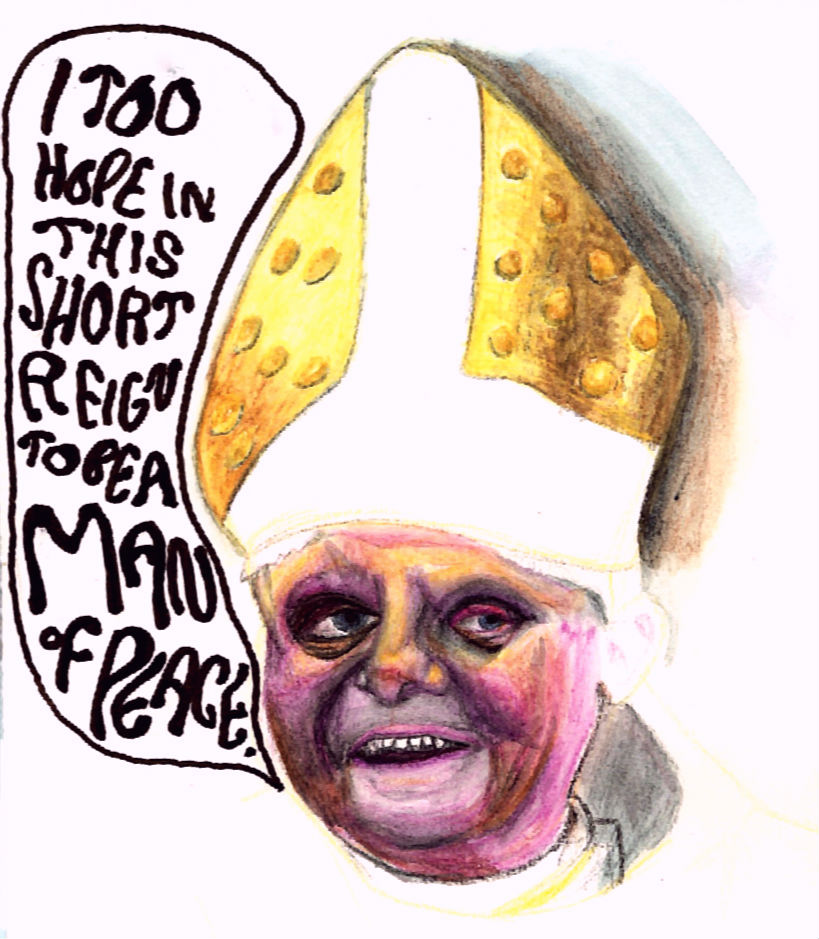 I TOO
HOPE IN
THIS
SHORT
REIGN
TO BE A
MAN
OF PEACE.